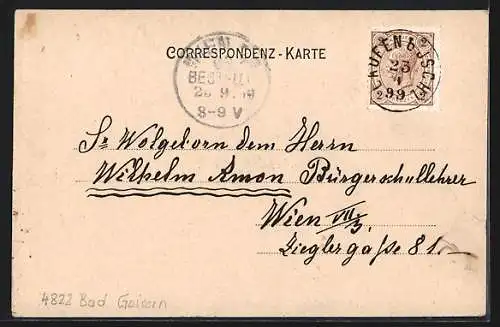 CORRESPONDENZ - KARTE
LAUFEN B. ISCHL
23
99
BEST
8-9 V
Sr Wolgeborn dem Herrn
Wilhelm Amon Bürgerschullehrer
Wien VII/3,
Zieglergaße 81.
4822 Bad Goisern